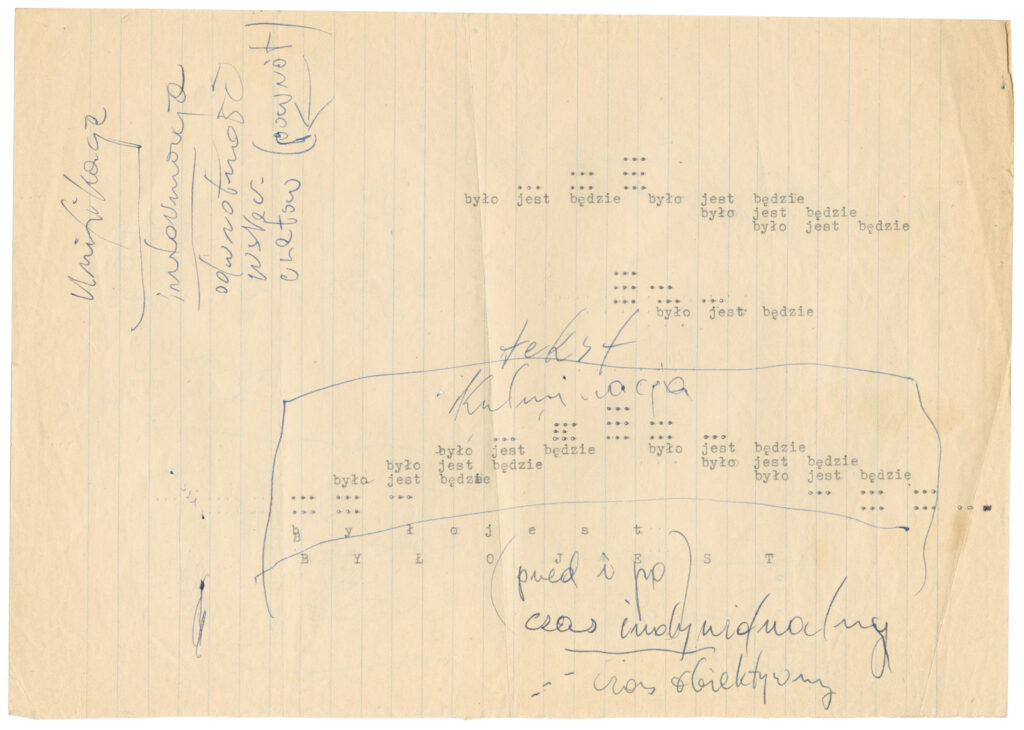 informacja
odwrotność
(powrót)
••• 
••• •••
••• ••• •••
było jest będzie było jest będzie
było jest będzie
było jest będzie
•••
••• •••
••• ••• •••
było jest będzie
tekst
Kulminacja
•••
••• ••• •••
••• ••• ••• ••• •••
było jest będzie było jest będzie
było jest będzie było jest będzie
było jest będzie było jest będzie
••• ••• ••• ••• ••• •••
••• ••• ••• •••
b y ł o j e s t
B Y Ł O J E S T
(przed i po)
czas indywidualny
czas obiektywny